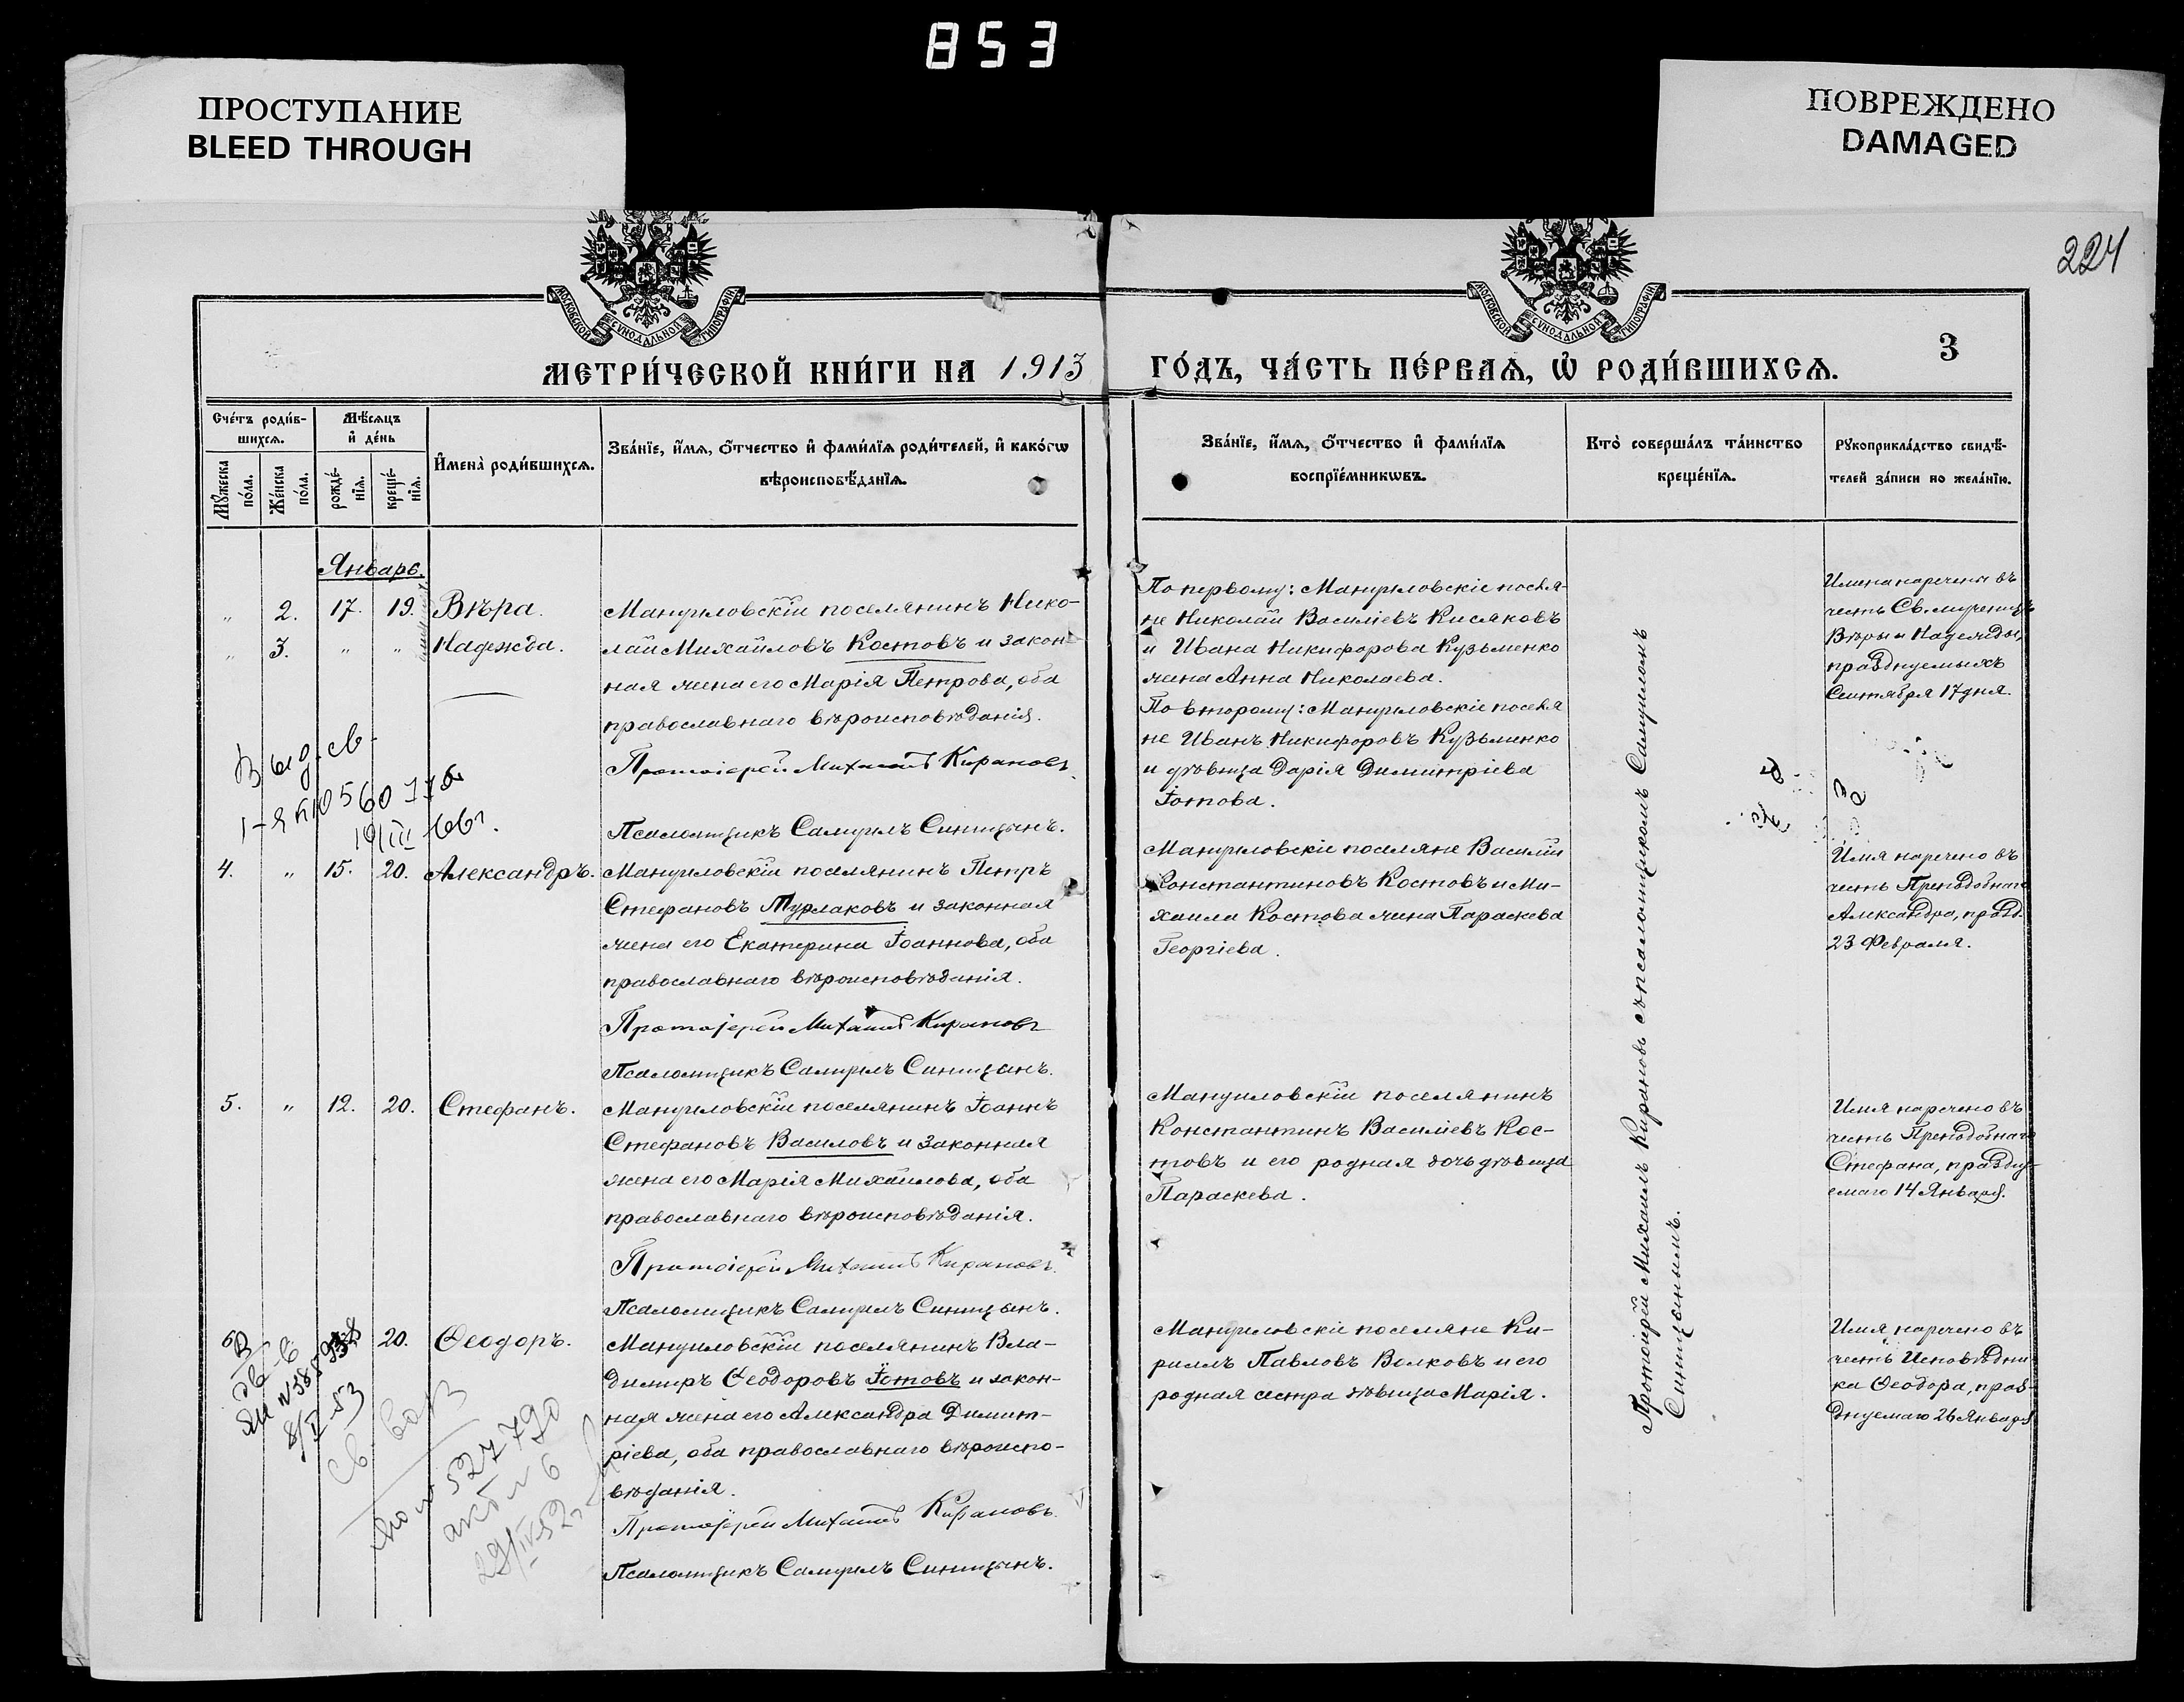 853
ПРОСТУПАНИЕ
BLEED THROUGH
ПОВРЕЖДЕНО
DAMAGED
224
МОСКОВСКОЙ СУНОДАЛЬНОЙ ТИПОГРАФІИ
МОСКОВСКОЙ СУНОДАЛЬНОЙ ТИПОГРАФІИ
МЕТРИ́ЧЕСКОЙ КНИ́ГИ НА 1913
ГО́ДЪ, ЧА́СТЬ ПЕ́РВАѦ, Ѽ РОДИ́ВШИХСѦ.
3
Сче́тъ роди́в-
шихсѧ.
Мꙋ́жеска
по́ла.
Же́нска
по́ла.
Мѣ́сѧцъ
и҆ де́нь
рожде́-
нїѧ.
креще́-
нїѧ.
И҆мена̀ роди́вшихсѧ.
Зва́нїе, и҆́мѧ, ѻ҆́тчество и҆ фами́лїѧ роди́телей, и҆ како́гѡ
вѣроисповѣ́данїѧ.
Зва́нїе, и҆́мѧ, ѻ҆́тчество и҆ фами́лїѧ
воспрїе́мникѡвъ.
Кто̀ соверша́лъ та́инство
креще́нїѧ.
Рꙋкоприкла́дство свидѣ́-
телей за́писи по жела́нїю.
Январь.
„ 2. 17. 19. Вѣра.
„ 3. „ „ Надежда.
Мануиловскій поселянинъ Нико-
лай Михайловъ Костовъ и закон-
ная жена его Марія Петрова, оба
православнаго вѣроисповѣданія.
Протоіерей Михаилъ Кирановъ
Псаломщикъ Самуилъ Синицынъ.
По первому: Мануиловскіе поселя-
не Николай Василіевъ Кисяковъ
и Ивана Никифорова Кузьменко
жена Анна Николаева.
По второму: Мануиловскіе поселя
не Иванъ Никифоровъ Кузьменко
и дѣвица Дарія Димитріева
Іотова.
Имена наречены въ
честь Св. мученицъ
Вѣры и Надежды,
празднуемыхъ
Сентября 17 дня.
Выд. св-
19/III 66 г.
4. „ 15. 20. Александръ.
Мануиловскій поселянинъ Петръ
Стефановъ Турлаковъ и законная
жена его Екатерина Іоаннова, оба
православнаго вѣроисповѣданія.
Протоіерей Михаилъ Кирановъ
Псаломщикъ Самуилъ Синицынъ.
Мануиловскіе поселяне Василій
Константиновъ Костовъ и Ми-
хаила Костова жена Параскева
Георгіева.
Имя наречено въ
честь Преподобнаго
Александра, празд.
23 Февраля.
5. „ 12. 20. Стефанъ.
Мануиловскій поселянинъ Іоаннъ
Стефановъ Василовъ и законная
жена его Марія Михайлова, оба
православнаго вѣроисповѣданія.
Протоіерей Михаилъ Кирановъ.
Псаломщикъ Самуилъ Синицынъ.
Мануиловскій поселянинъ
Константинъ Василіевъ Кос-
товъ и его родная дочь дѣвица
Параскева.
Имя наречено въ
честь Преподобнаго
Стефана, праздну-
емаго 14 Января.
6. 20. Ѳеодоръ.
Мануиловскій поселянинъ Вла-
димиръ Ѳеодоровъ Іотовъ и закон-
ная жена его Александра Димит-
ріева, оба православнаго вѣроиспо-
вѣданія.
Протоіерей Михаилъ Кирановъ.
Псаломщикъ Самуилъ Синицынъ.
Мануиловскіе поселяне Ки-
риллъ Павловъ Волковъ и его
родная сестра дѣвица Марія.
Имя наречено въ
честь Исповѣдни-
ка Ѳеодора, праз-
днуемаго 26 Января
8/V-53
527790
29/IV-52
Протоіерей Михаилъ Кирановъ съ псаломщикомъ Самуиломъ
Синицынымъ.